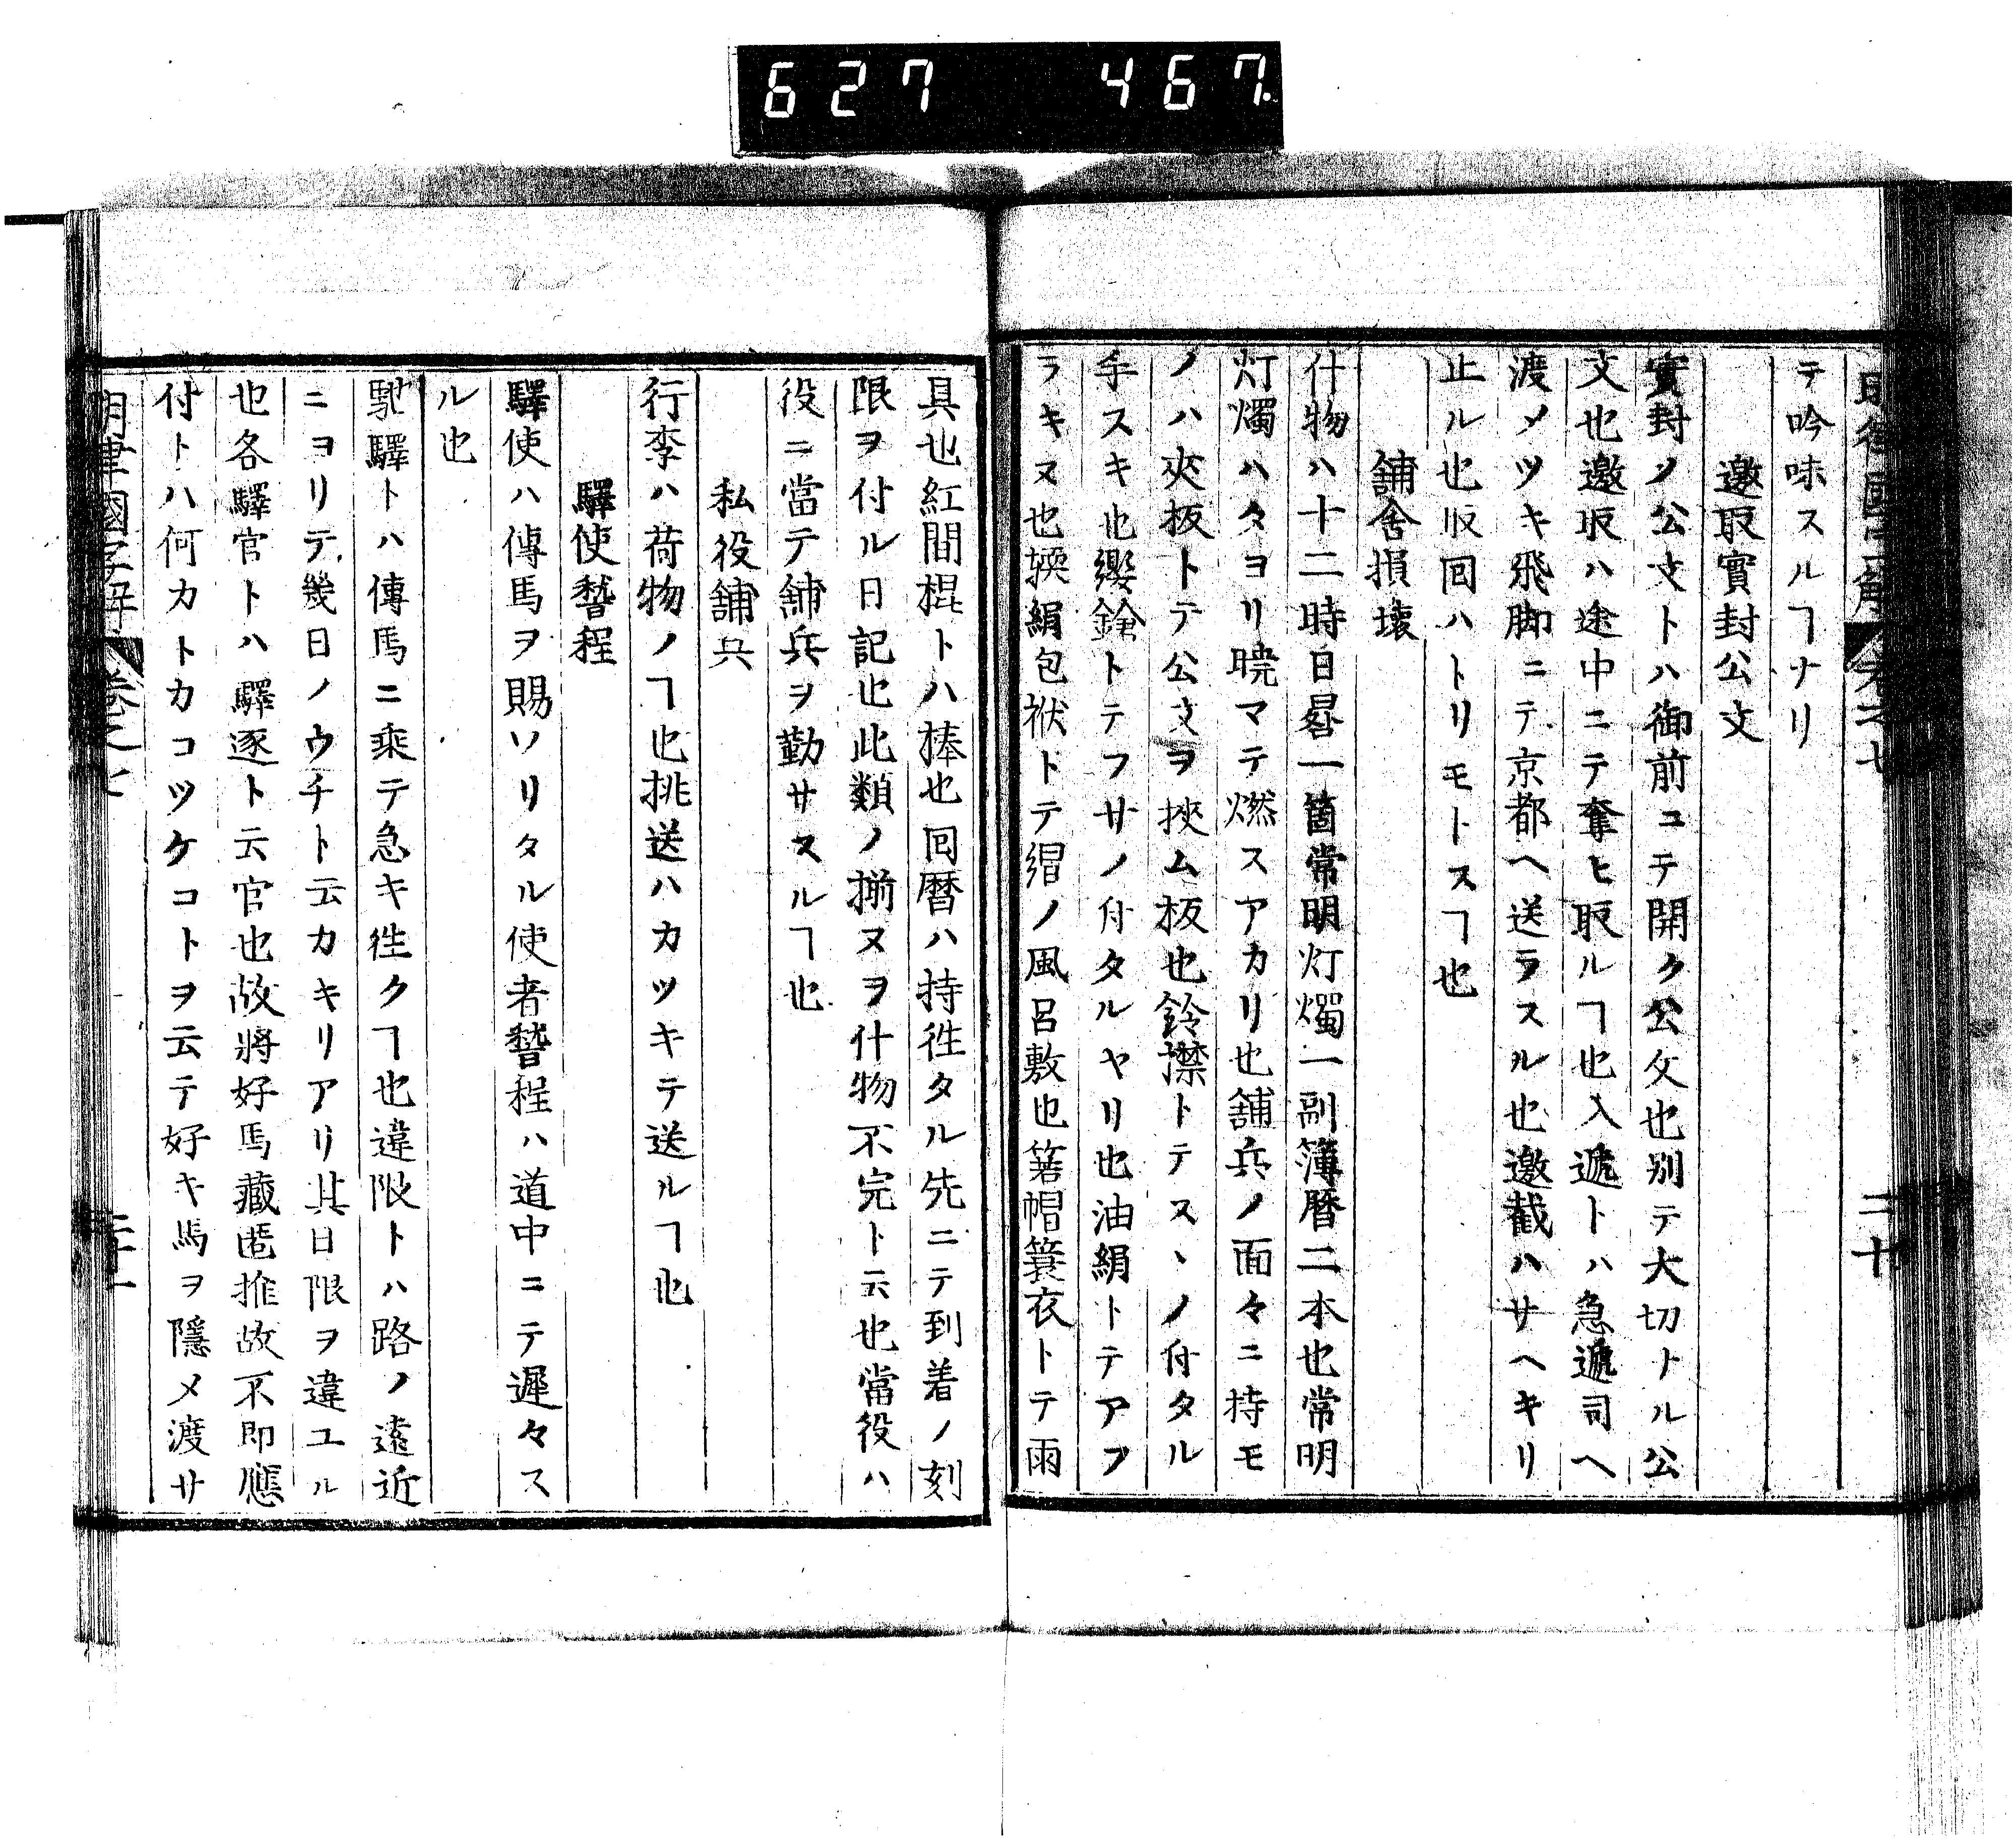 627 467
テ吟味スルヿナリ
邀取實封公文
實封ノ公文トハ御前ニテ開ク公文也別テ大切ナル公
文也邀取ハ途中ニテ奪ヒ取ルヿ也入遞トハ急遞司ヘ
渡メツキ飛脚ニテ京都ヘ送ラスル也邀截ハサヘキリ
止ル也取回ハトリモトスヿ也
舗舎損壊
什物ハ十二時日晷一箇常明灯燭一副簿暦二本也常明
灯燭ハタヨリ暁マテ燃スアカリ也舗兵ノ面々ニ持モ
ノハ夾板トテ公文ヲ挾ム板也鈴攀トテスヽノ付タル
手スキ也纓鎗トテフサノ付タルヤリ也油絹トテアフ
ラキヌ也軟絹包袱トテ絹ノ風呂敷也箬帽簑衣トテ雨
具也紅悶棍トハ棒也回暦ハ持徃タル先ニテ到着ノ刻
限ヲ付ル日記也此類ノ揃ヌヲ什物不完ト云也當役ハ
役ニ當テ舗兵ヲ勤サスルヿ也
私役舗兵
行李ハ荷物ノヿ也挑送ハカツキテ送ルヿ也
驛使稽程
驛使ハ傳馬ヲ賜ソリタル使者稽程ハ道中ニテ遲々ス
ル也
馳驛トハ傳馬ニ乘テ急キ徃クヿ也違限トハ路ノ遠近
ニヨリテ幾日ノウチト云カキリアリ其日限ヲ違ユル
也各驛官トハ驛逐ト云官也故將好馬藏匿推故不即應
付トハ何カトカコツケコトヲ云テ好キ馬ヲ隱メ渡サ
明律國字解 卷之七